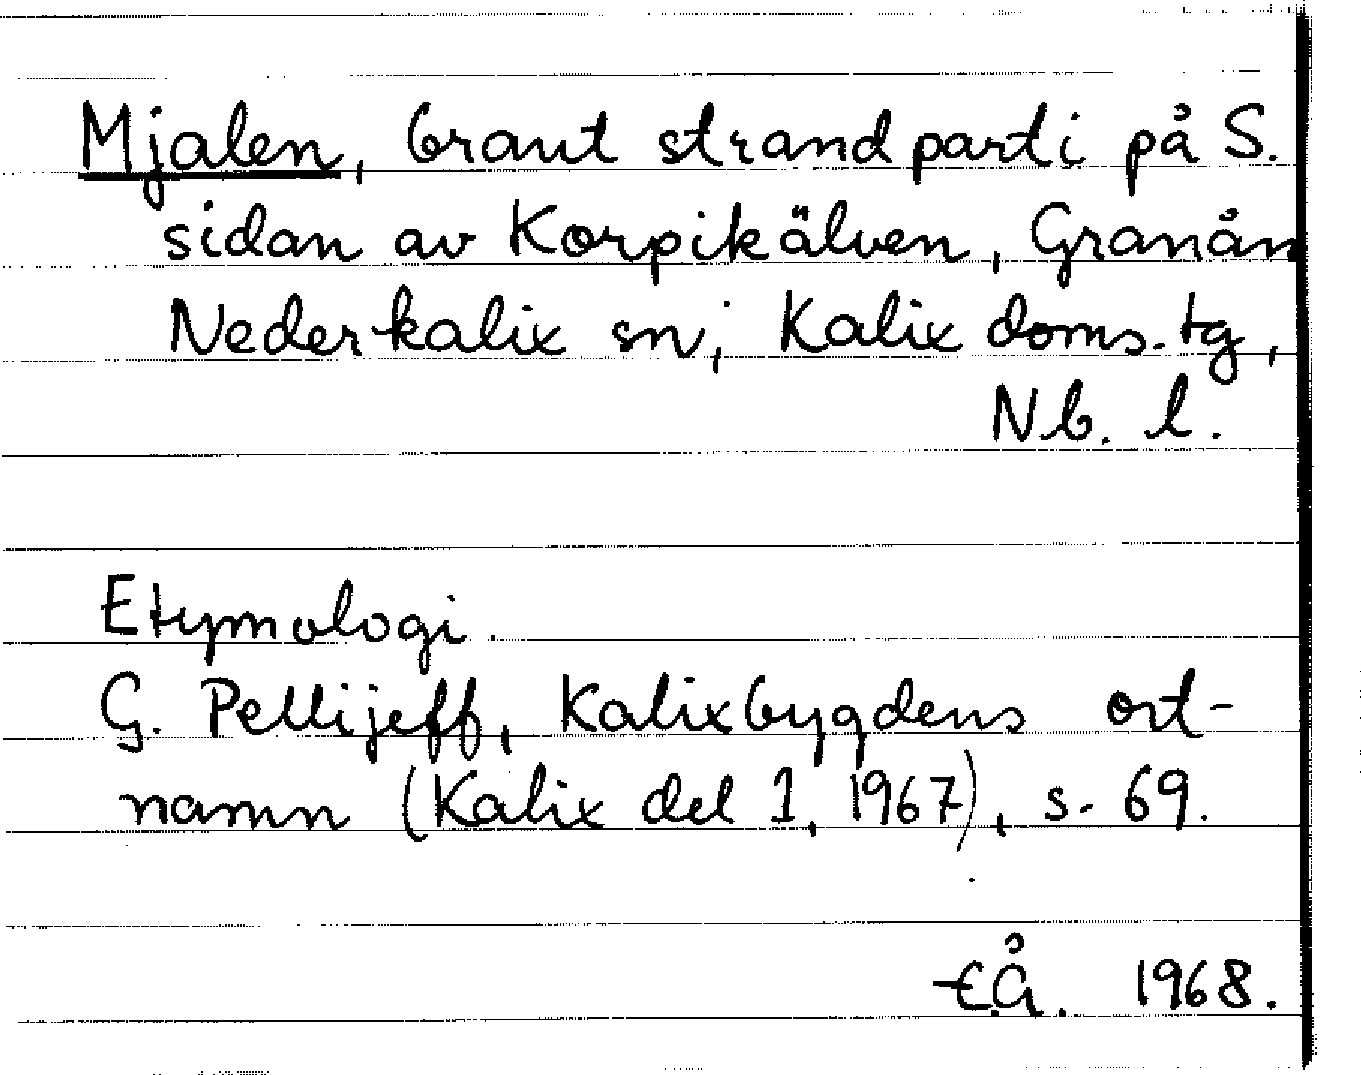 Mjalen, brant strandparti på S.
sidan av Korpikälven, Granån
Nederkalix sn, Kalix doms. tg,
Nb. l.
Etymologi
G. Pellijeff, Kalixbygdens ort-
namn (Kalix del 1, 1967), s. 69.
E.Å. 1968.